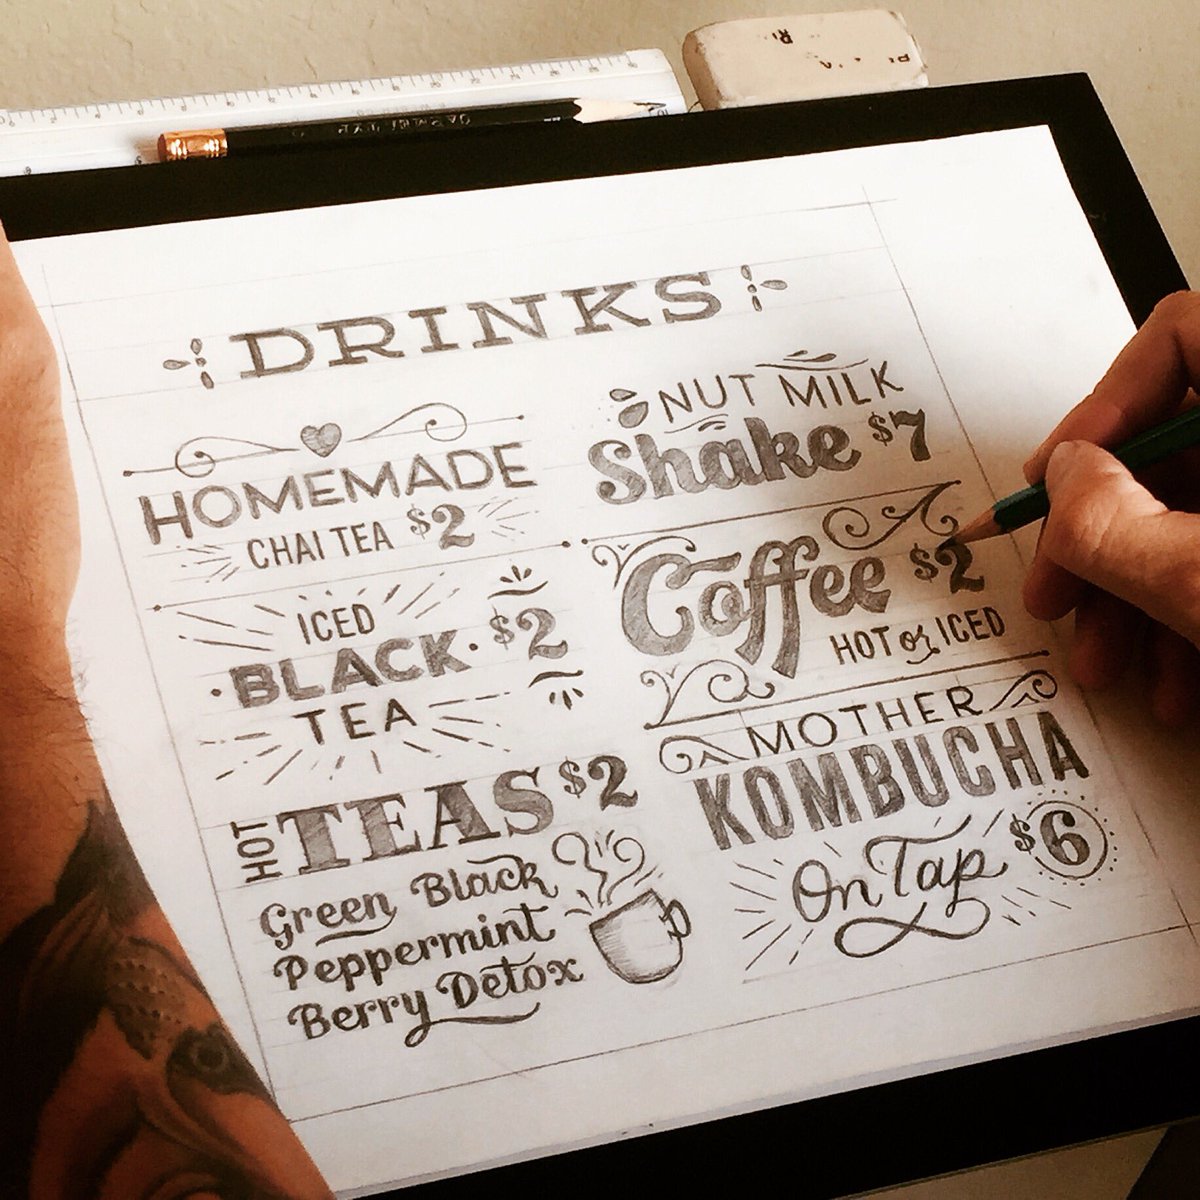 DRINKS
HOMEMADE
CHAI TEA $2
ICED
BLACK $2
TEA
HOT TEAS $2
Green Black
Peppermint
Berry Detox
NUT MILK
Shake $7
Coffee $2
HOT or ICED
MOTHER
KOMBUCHA
On Tap $6